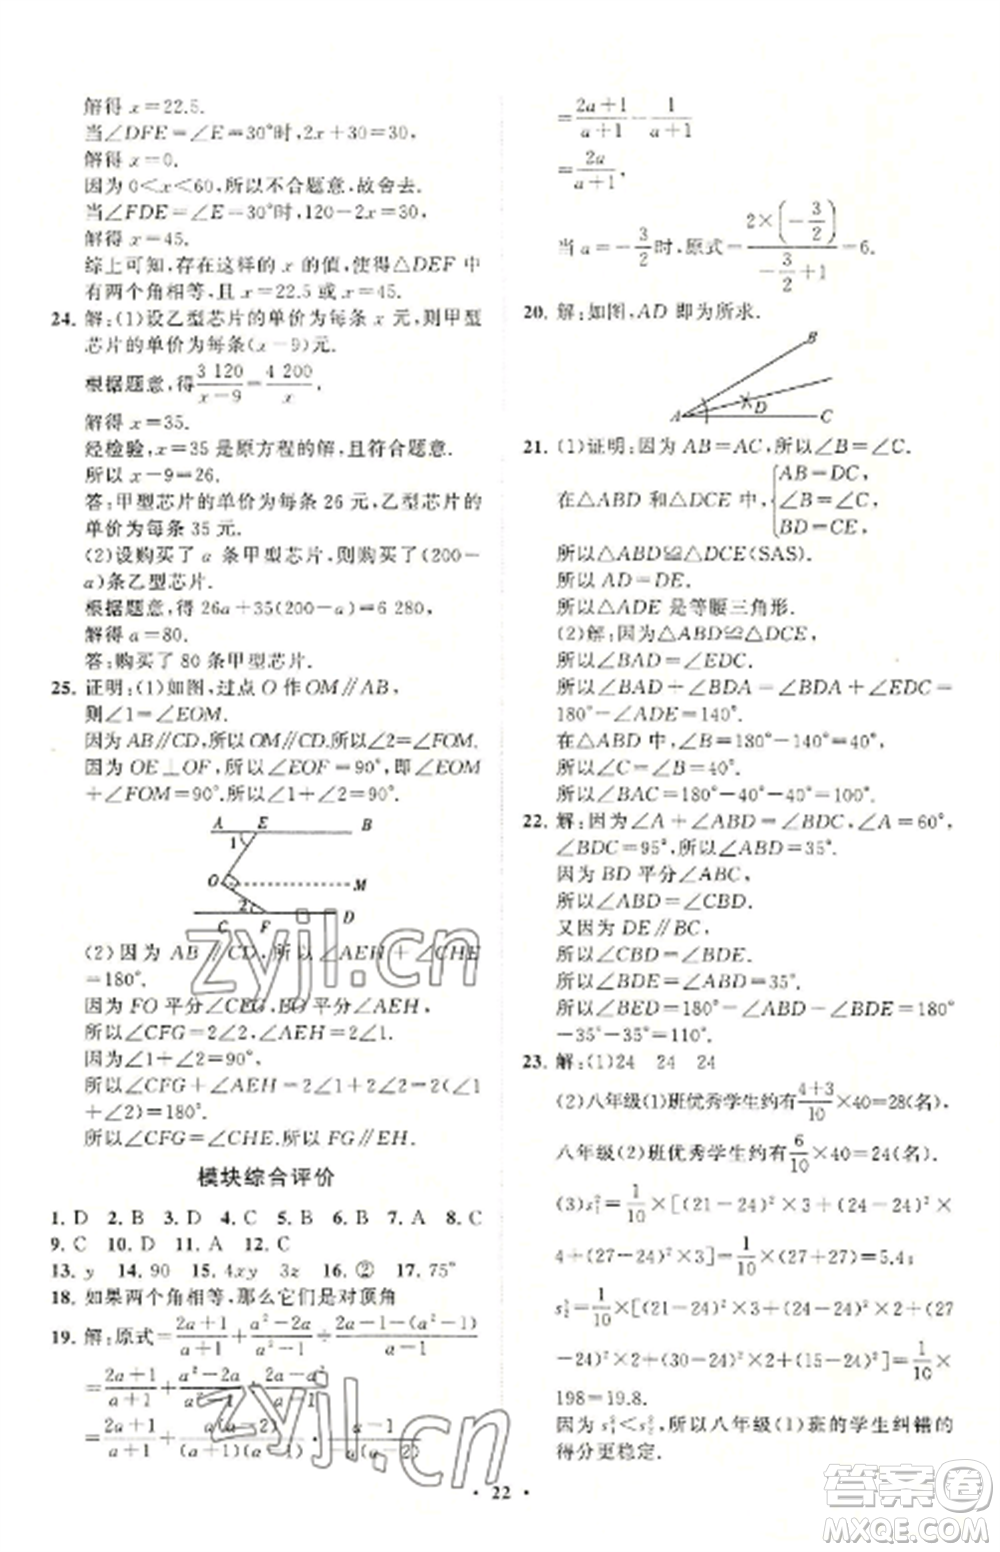 解得 x=22.5.
当∠DFE=∠E=30°时,2x+30=30,
解得 x=0.
因为 0<x<60,所以不合题意,故舍去.
当∠FDE=∠E=30°时,120-2x=30,
解得 x=45.
综上可知,存在这样的 x 的值,使得△DEF 中
有两个角相等,且 x=22.5 或 x=45.
24. 解:(1)设乙型芯片的单价为每条 x 元,则甲型
芯片的单价为每条(x-9)元.
根据题意,得 3 120/(x-9)=4 200/x.
解得 x=35.
经检验,x=35 是原方程的解,且符合题意.
所以 x-9=26.
答:甲型芯片的单价为每条 26 元,乙型芯片的
单价为每条 35 元.
(2)设购买了 a 条甲型芯片,则购买了(200-
a)条乙型芯片.
根据题意,得 26a+35(200-a)=6 280,
解得 a=80.
答:购买了 80 条甲型芯片.
25. 证明:(1)如图,过点 O 作 OM∥AB,
则∠1=∠EOM.
因为 AB∥CD,所以 OM∥CD,所以∠2=∠FOM.
因为 OE⊥OF,所以∠EOF=90°,即∠EOM
+∠FOM=90°,所以∠1+∠2=90°.
A E B
1
O M
2
C F D
(2)因为 AB∥CD,所以∠AEH+∠CHE
=180°.
因为 FO 平分∠CFG,EO 平分∠AEH,
所以∠CFG=2∠2,∠AEH=2∠1.
因为∠1+∠2=90°,
所以∠CFG+∠AEH=2∠1+2∠2=2(∠1
+∠2)=180°.
所以∠CFG=∠CHE,所以 FG∥EH.
模块综合评价
1. D 2. B 3. D 4. C 5. B 6. B 7. A 8. C
9. C 10. D 11. A 12. C
13. y 14. 90 15. 4xy 3z 16. ② 17. 75°
18. 如果两个角相等,那么它们是对顶角
19. 解:原式=(2a+1)/(a+1)+(a²-2a)/(a²-1)÷(2a-1-(a²-1))/(a-1)
=(2a+1)/(a+1)+(a²-2a)/(a²-1)÷(2a-a²)/(a-1)
=(2a+1)/(a+1)+a(a-2)/((a+1)(a-1))·(a-1)/(-a(a-2))
=(2a+1)/(a+1)-1/(a+1)
=2a/(a+1),
当 a=-3/2时,原式=(2×(-3/2))/(-3/2+1)=6.
20. 解:如图,AD 即为所求.
B
D
A C
21. (1)证明:因为 AB=AC,所以∠B=∠C.
在△ABD 和△DCE 中,{AB=DC,
∠B=∠C,
BD=CE,
所以△ABD≌△DCE(SAS).
所以 AD=DE.
所以△ADE 是等腰三角形.
(2)解:因为△ABD≌△DCE,
所以∠BAD=∠EDC.
所以∠BAD+∠BDA=∠BDA+∠EDC=
180°-∠ADE=140°.
在△ABD 中,∠B=180°-140°=40°,
所以∠C=∠B=40°.
所以∠BAC=180°-40°-40°=100°.
22. 解:因为∠A+∠ABD=∠BDC,∠A=60°,
∠BDC=95°,所以∠ABD=35°.
因为 BD 平分∠ABC,
所以∠ABD=∠CBD.
又因为 DE∥BC,
所以∠CBD=∠BDE.
所以∠BDE=∠ABD=35°.
所以∠BED=180°-∠ABD-∠BDE=180°
-35°-35°=110°.
23. 解:(1)24 24 24
(2)八年级(1)班优秀学生约有(4+3)/10×40=28(名),
八年级(2)班优秀学生约有6/10×40=24(名).
(3)s₁²=1/10×[(21-24)²×3+(24-24)²×
4+(27-24)²×3]=1/10×(27+27)=5.4;
s₂²=1/10×[(30-24)²×3+(24-24)²×2+(27
-24)²×1+(21-24)²×2+(15-24)²]=1/10×
198=19.8.
因为 s₁²<s₂²,所以八年级(1)班的学生纠错的
得分更稳定.
· 22 ·
zyjl.cn
zyjl.cn
答案圈
MXQE.COM